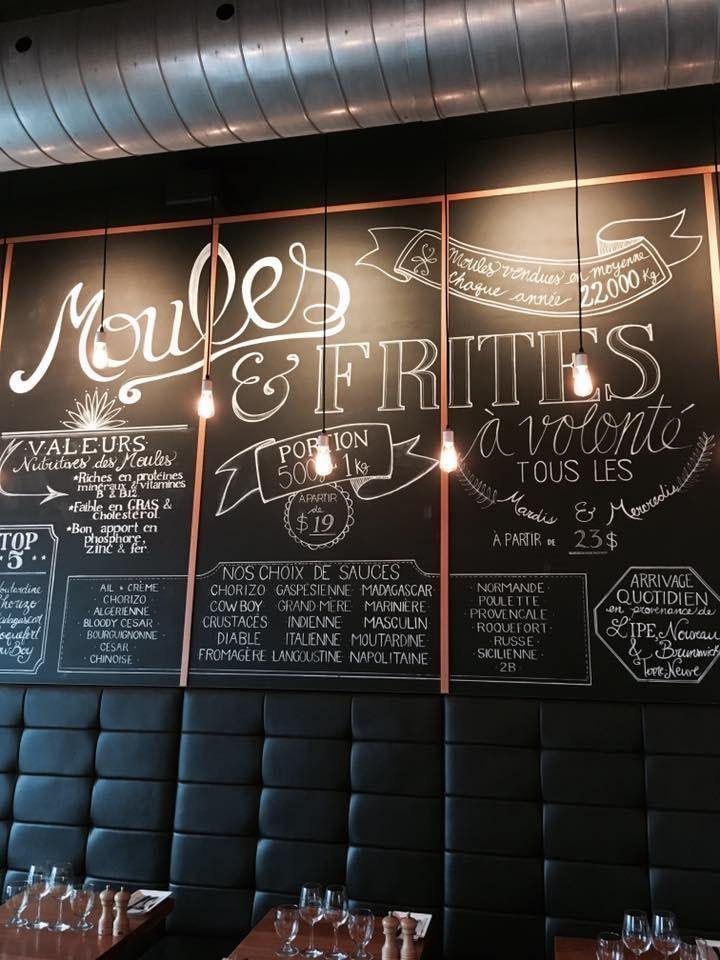 Moules
& FRITES
à volonté
TOUS LES
Mardis & Mercredis
À PARTIR DE 23$
Moules vendues en moyenne
chaque année 22.000 Kg
PORTION
500g 1kg
À PARTIR
de
$19
VALEURS
Nutritives des Moules
*Riches en protéines
minéraux & vitamines
B & B12
*Faible en GRAS &
Cholestérol
*Bon apport en
phosphore,
zinc & fer
TOP
5
Roquefort
AIL & CRÈME
CHORIZO
ALGÉRIENNE
BLOODY CESAR
BOURGUIGNONNE
CESAR
CHINOISE
NOS CHOIX DE SAUCES
CHORIZO GASPESIENNE MADAGASCAR
COWBOY GRAND MÈRE MARINIÈRE
CRUSTACÉS INDIENNE MASCULIN
DIABLE ITALIENNE MOUTARDINE
FROMAGÈRE LANGOUSTINE NAPOLITAINE
NORMANDE
POULETTE
PROVENCALE
ROQUEFORT
RUSSE
SICILIENNE
2B
ARRIVAGE
QUOTIDIEN
en provenance de
L'IPE, Nouveau
& Brunswick
Terre Neuve